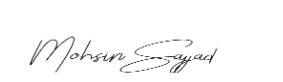 Mohsin Sajjad